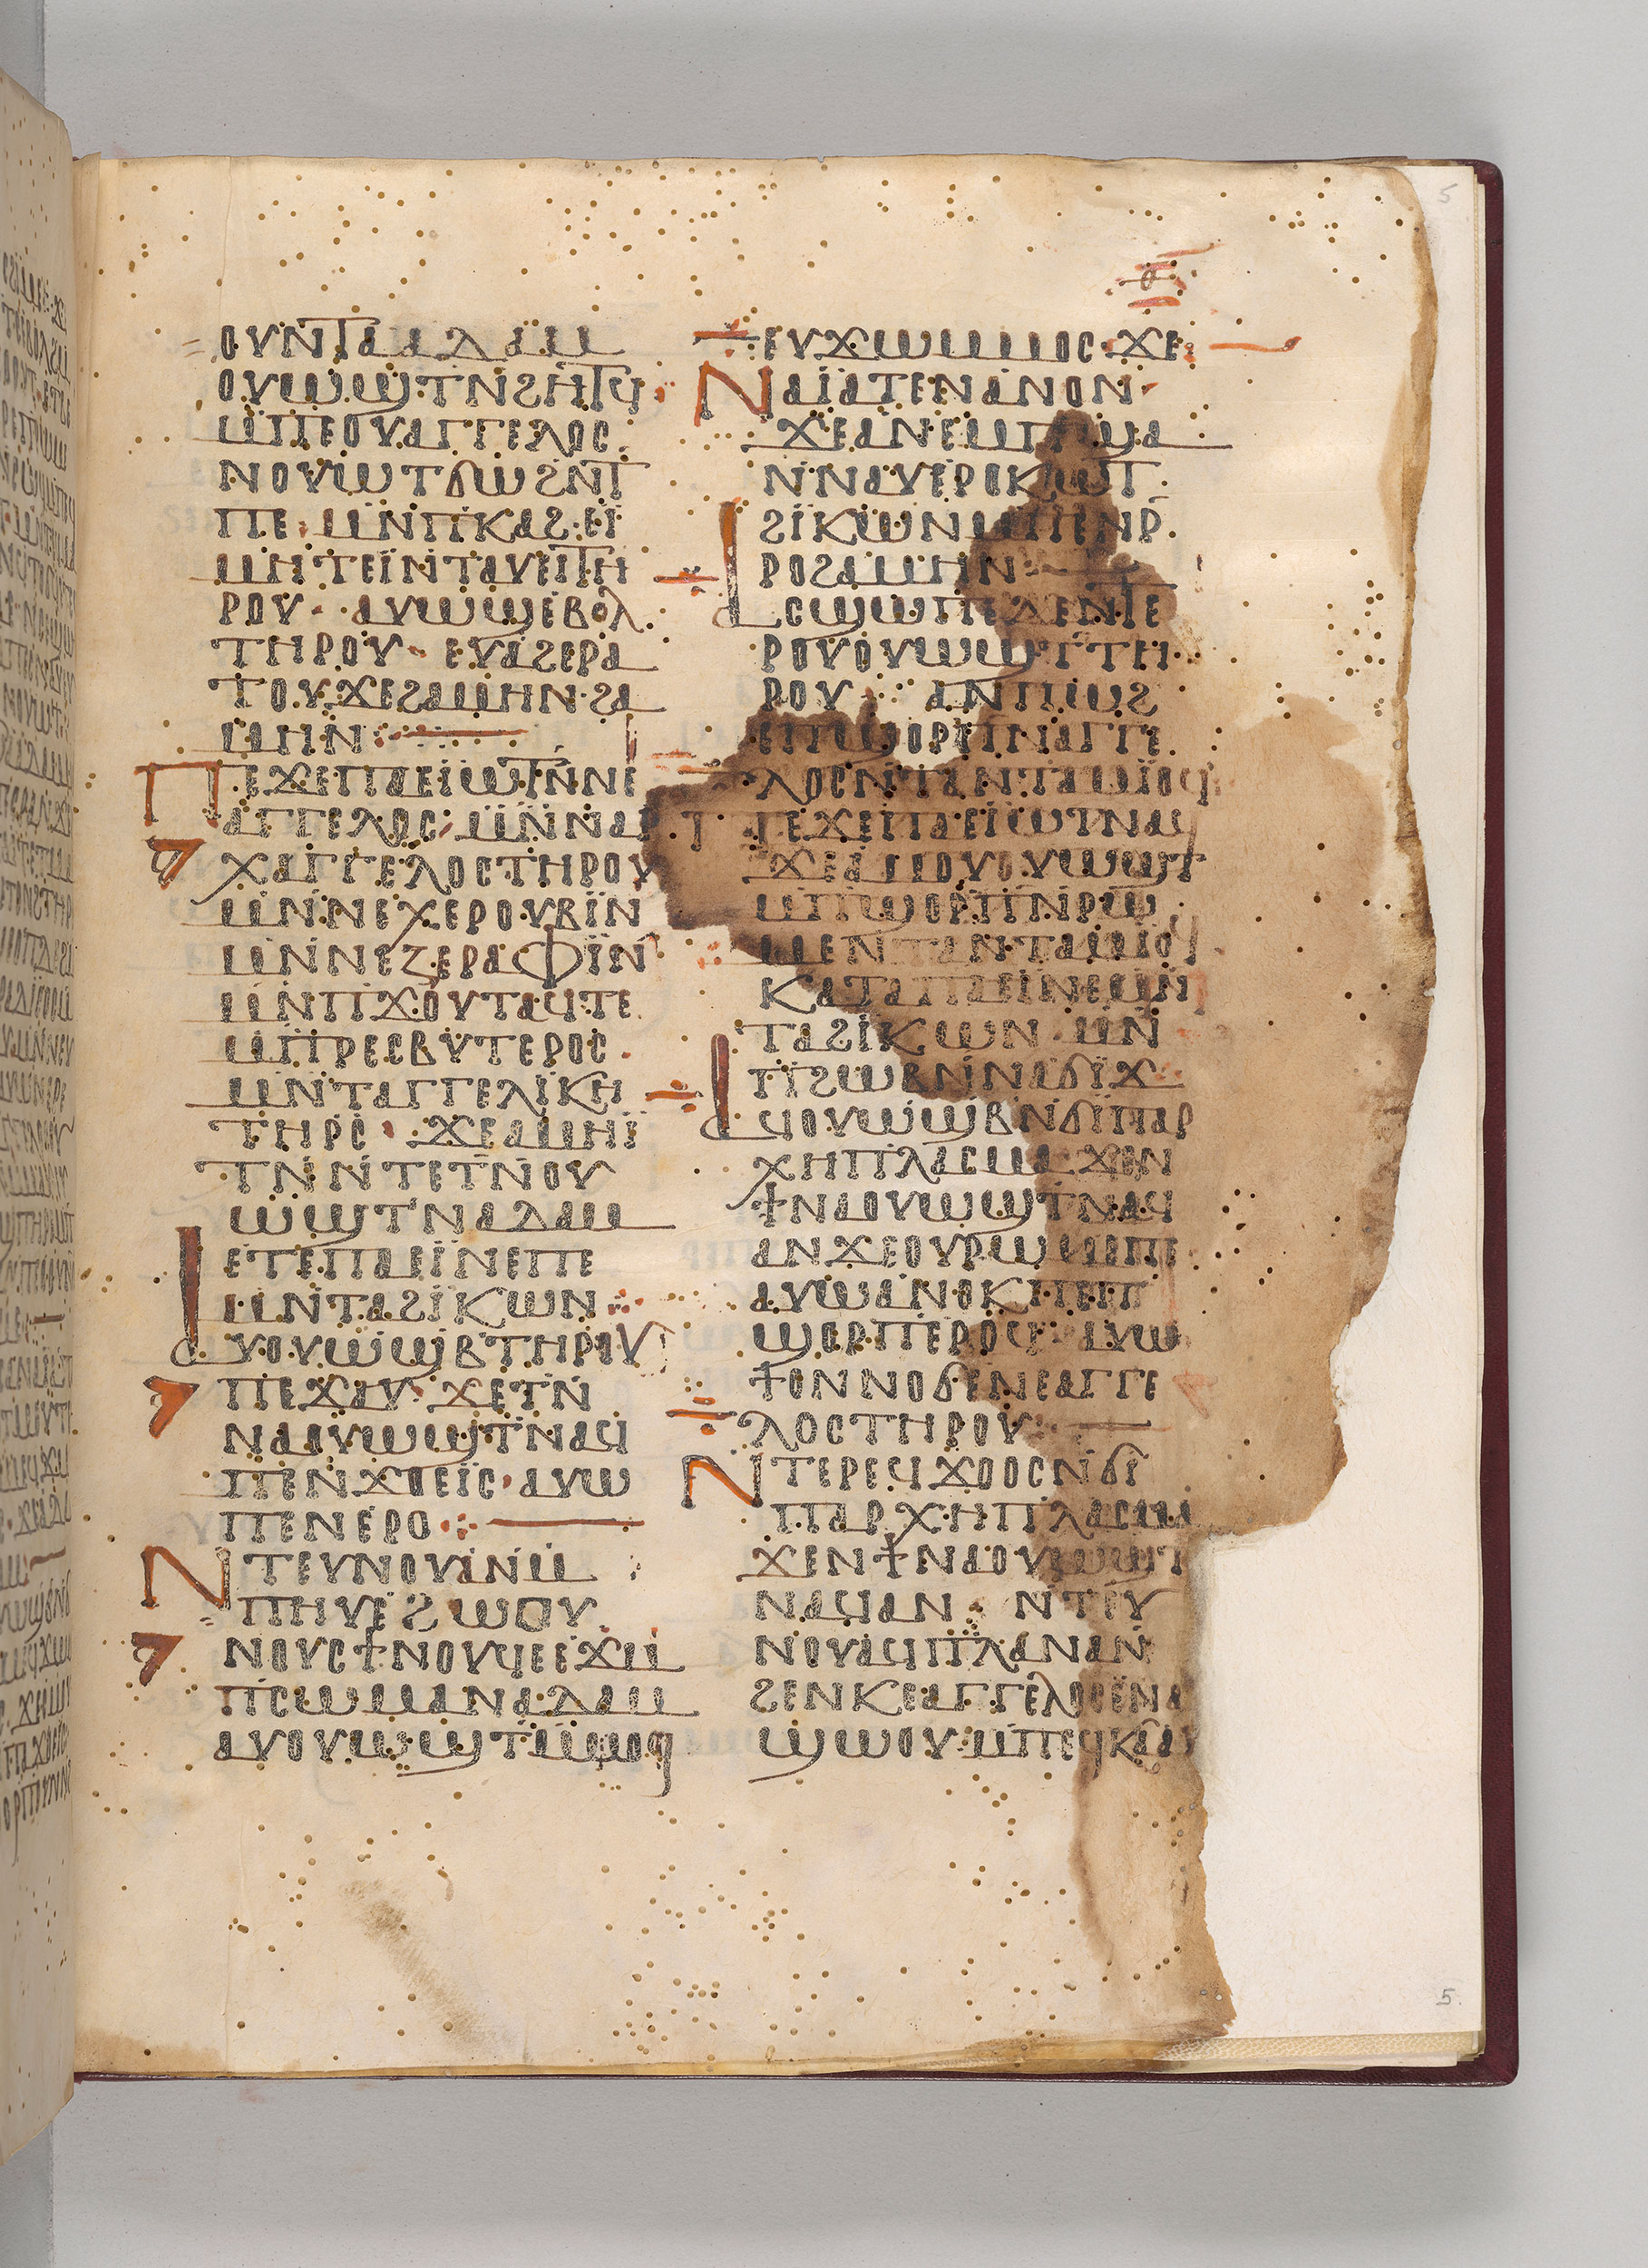 ⲟⲩⲛⲧⲁⲁⲇⲁⲙ
ⲟⲩⲱϣⲧⲛϩⲏⲧϥ
ⲙⲡⲉⲟⲩⲁⲅⲅⲉⲗⲟⲥ
ⲛⲟⲩⲱⲧϭⲱϩⲛⲧ
ⲡⲉ· ⲙⲛⲡⲕⲁϩ·ⲉⲓ̈
ⲙⲏⲧⲉⲓ̈ⲛⲧⲁⲩⲉⲓⲧⲏ
ⲣⲟⲩ· ⲁⲩⲱϣⲉⲃⲟⲗ
ⲧⲏⲣⲟⲩ· ⲉⲩⲁϩⲉⲣⲁ
ⲧⲟⲩ·ϫⲉϩⲁⲙⲏⲛ·ϩⲁ
ⲙⲏⲛ
ⲡⲉϫⲉⲡⲁⲉⲓⲱⲧⲛⲛⲉ
ⲁⲅⲅⲉⲗⲟⲥ· ⲙⲛⲛⲁⲣ
ⲭⲁⲅⲅⲉⲗⲟⲥⲧⲏⲣⲟⲩ
ⲙⲛⲛⲉⲭⲉⲣⲟⲩⲃⲓⲛ
ⲙⲛⲛⲉⲍⲉⲣⲁⲫⲓ̈ⲛ
ⲙⲛⲡϫⲟⲩⲧⲁϥⲧⲉ
ⲙⲡⲣⲉⲥⲃⲩⲧⲉⲣⲟⲥ
ⲙⲛⲧⲁⲅⲅⲉⲗⲓⲕⲏ
ⲧⲏⲣⲥ· ϫⲉⲁⲙⲏⲓ̈
ⲧⲛⲛⲧⲉⲧⲛⲟⲩ
ⲱϣⲧⲛⲁⲇⲁⲙ
ⲉⲧⲉⲡⲁⲉⲓⲛⲉⲡⲉ
ⲙⲛⲧⲁϩⲓⲕⲱⲛ
ⲁⲩⲟⲩⲱϣⲃⲧⲏⲣⲟⲩ
ⲡⲉϫⲁⲩ· ϫⲉⲧⲛ
ⲛⲁⲟⲩⲱϣⲧⲛⲁϥ
ⲡⲉⲛϫⲟⲉⲓⲥ· ⲁⲩⲱ
ⲡⲉⲛⲉⲣⲟ
ⲛⲧⲉⲩⲛⲟⲩⲁⲛⲙ
ⲡⲏⲩⲉϩⲱⲟⲩ
ⲛⲟⲩⲥϯⲛⲟⲩϥⲉⲉϫⲙ
ⲡⲥⲱⲙⲁⲛⲁⲇⲁⲙ
ⲁⲩⲟⲩⲱϣⲧⲙⲙⲟϥ
ⲉⲩϫⲱⲙⲙⲟⲥ·ϫⲉ
ⲛⲁⲓ̈ⲁⲧⲉⲛⲁⲛⲟⲛ
ϫⲉⲁⲛⲉⲙⲡϣⲁ
ⲛⲛⲁⲩⲉⲣⲟⲕⲱⲧ
ϩⲓⲕⲱⲛⲙⲡⲉⲛⲣ
ⲣⲟϩⲁⲙⲏⲛ
ⲁⲥϣⲱⲡⲉⲇⲉⲛⲧⲉ
ⲣⲟⲩⲟⲩⲱϣⲧⲧⲏ
ⲣⲟⲩ ⲁⲛⲡⲱϩ
ⲉⲡϣⲟⲣⲡⲛⲁⲅⲅⲉ
ⲗⲟⲥⲛⲧⲁⲛⲧⲁⲙⲓ̈ⲟϥ
ⲡⲉϫⲉⲡⲁⲉⲓⲱⲧⲛⲁϥ
ϫⲉⲁⲙⲟⲩⲟⲩⲱϣⲧ
ⲙⲡϣⲟⲣⲡⲛⲣⲱ
ⲙⲉⲛⲧⲁⲛⲧⲁⲙⲓⲟϥ
ⲕⲁⲧⲁⲡⲁⲉⲓⲛⲉⲙⲛ
ⲧⲁϩⲓⲕⲱⲛ ⲙⲛ
ⲡϩⲱⲃⲛⲛⲁϭⲓϫ
ⲁϥⲟⲩⲱϣⲃⲛϭⲓⲡⲁⲣ
ⲭⲏⲡⲗⲁⲥⲙⲁ ϫⲉⲛ
ϯⲛⲁⲟⲩⲱϣⲧⲛⲁϥ
ⲁⲛϫⲉⲟⲩⲣⲱⲙⲉⲡⲉ
ⲁⲩⲱⲁⲛⲟⲕⲡⲉⲧ
ϣⲟⲣⲡⲉⲣⲟϥ ⲁⲩⲱ
ϯⲟⲛⲛⲟϭⲉⲛⲉⲁⲅⲅⲉ
ⲗⲟⲥⲧⲏⲣⲟⲩ
ⲛⲧⲉⲣⲉϥϫⲟⲟⲥⲛϭⲓ
ⲡⲁⲣⲭⲏⲡⲗⲁⲥⲙⲁ
ϫⲉⲛϯⲛⲁⲟⲩⲱϣⲧ
ⲛⲁϥⲁⲛ· ⲛⲧⲉⲩ
ⲛⲟⲩⲁϥⲡⲗⲁⲛⲁⲛ
ϩⲉⲛⲕⲉⲁⲅⲅⲉⲗⲟⲥⲉⲛⲁ
ϣⲱⲟⲩ·ⲙⲡⲉϥⲕⲁⲁⲩ
5
5.